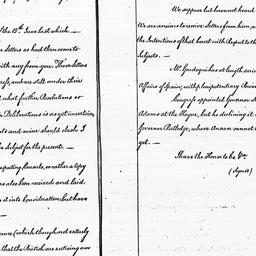 of the 13th June last which
Letters as had then come to
with any from you. These letters
and are still under their
what further Resolutions or
Deliberations is as yet uncertain,
and mine should clash I
the subject for the present. —
respecting Consuls, or rather a Copy
has also been received and laid
it into Consideration, but have
which though not entirely
that the British are enticing our
We suppose but have not heard
We are anxious to receive Letters from him, a
the Intentions of that Court with Respect to th
Subjects. —
Mr. Gardoqui has at length arrived
Affairs of Spain, with plenipotentiary Powers
Congress appointed Governor
Adams at the Hague, but he declining it
Governor Rutledge, whose answer cannot
yet. —
I have the Honor to be &c.
(Signed)